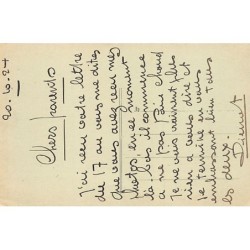 20.10.27
Chers parents
J'ai reçu votre lettre
du 17 au vous me dites
que vous avez reçu mes
photos, en ce moment
là bas il commence
a ne pas faire chaud
Je ne vois vraiment plus
rien a vous dire et
je termine en vous
embrassant bien tous
les deux.